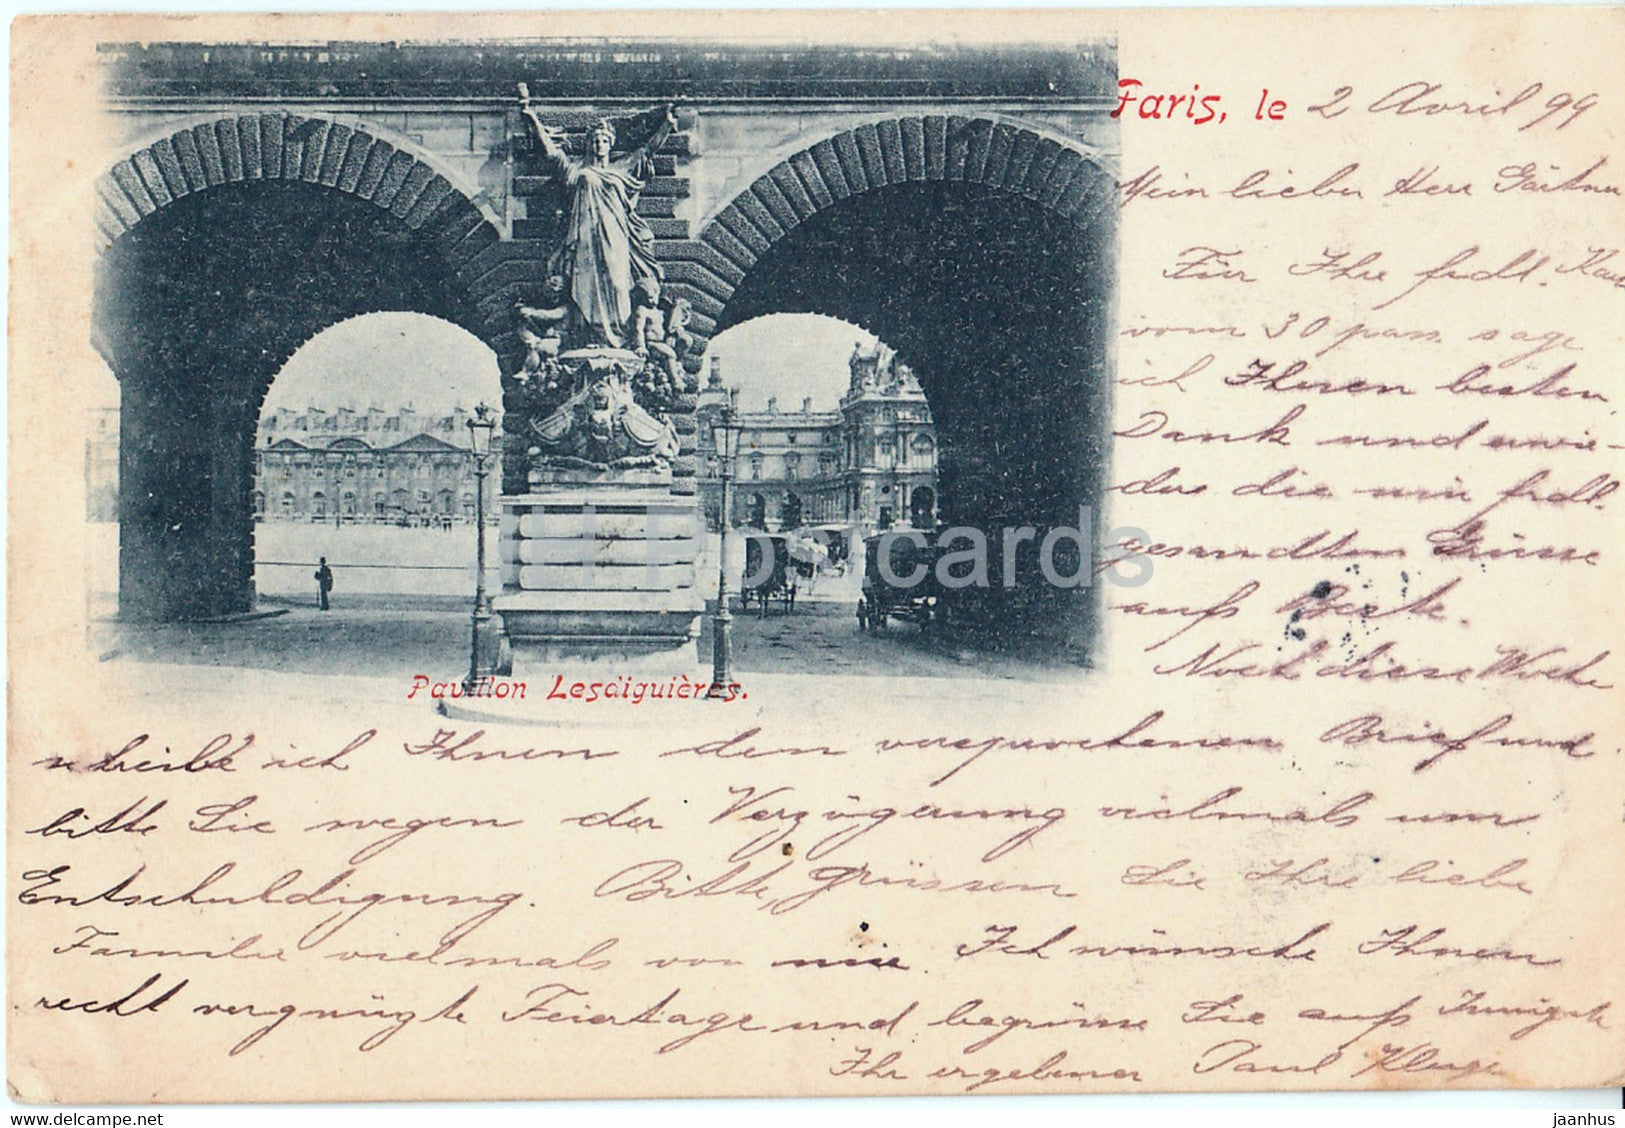 Paris, le 2 Avril 99
Mein lieber Herr Gärtner
Für Ihre frdl. Kart
vom 30 pass. sage
ich Ihnen besten
Dank und erwie-
dere die mir frdl.
gesandten Grüsse
aufs Beste.
Noch diese Woche
Pavillon Lesdiguières.
schreibe ich Ihnen den versprochenen Brief und
bitte Sie wegen der Verzögerung vielmals um
Entschuldigung. Bitte, grüssen Sie Ihre liebe
Familie vielmals von mir. Ich wünsche Ihnen
recht vergnügte Feiertage und begrüsse Sie aufs Innigste
Ihr ergebener Paul
JH Postcards
www.delcampe.net
jaanhus